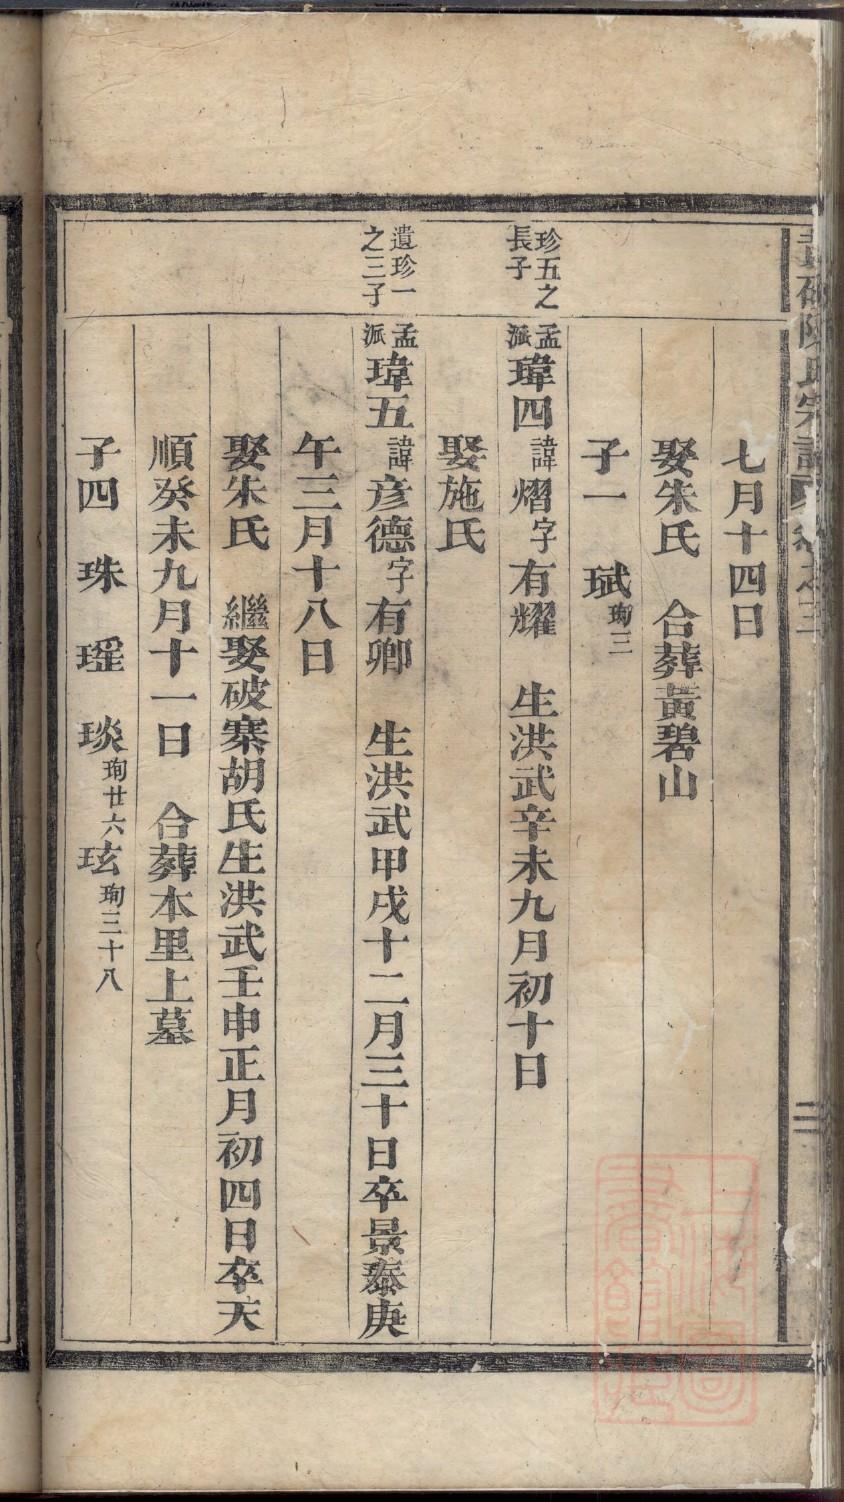 陳氏宗譜
七月十四日
娶朱氏　合葬黃碧山
子一　珷珣三
珍五之
長子
孟
派
瑋四諱熠字有耀　生洪武辛未九月初十日
娶施氏
遺珍一
之三子
孟
派
瑋五諱彥德字有卿　生洪武甲戌十二月三十日卒景泰庚
午三月十八日
娶朱氏　繼娶破寨胡氏生洪武壬申正月初四日卒天
順癸未九月十一日　合葬本里上墓
子四　珠　瑶　琰珣廿六玹珣三十八